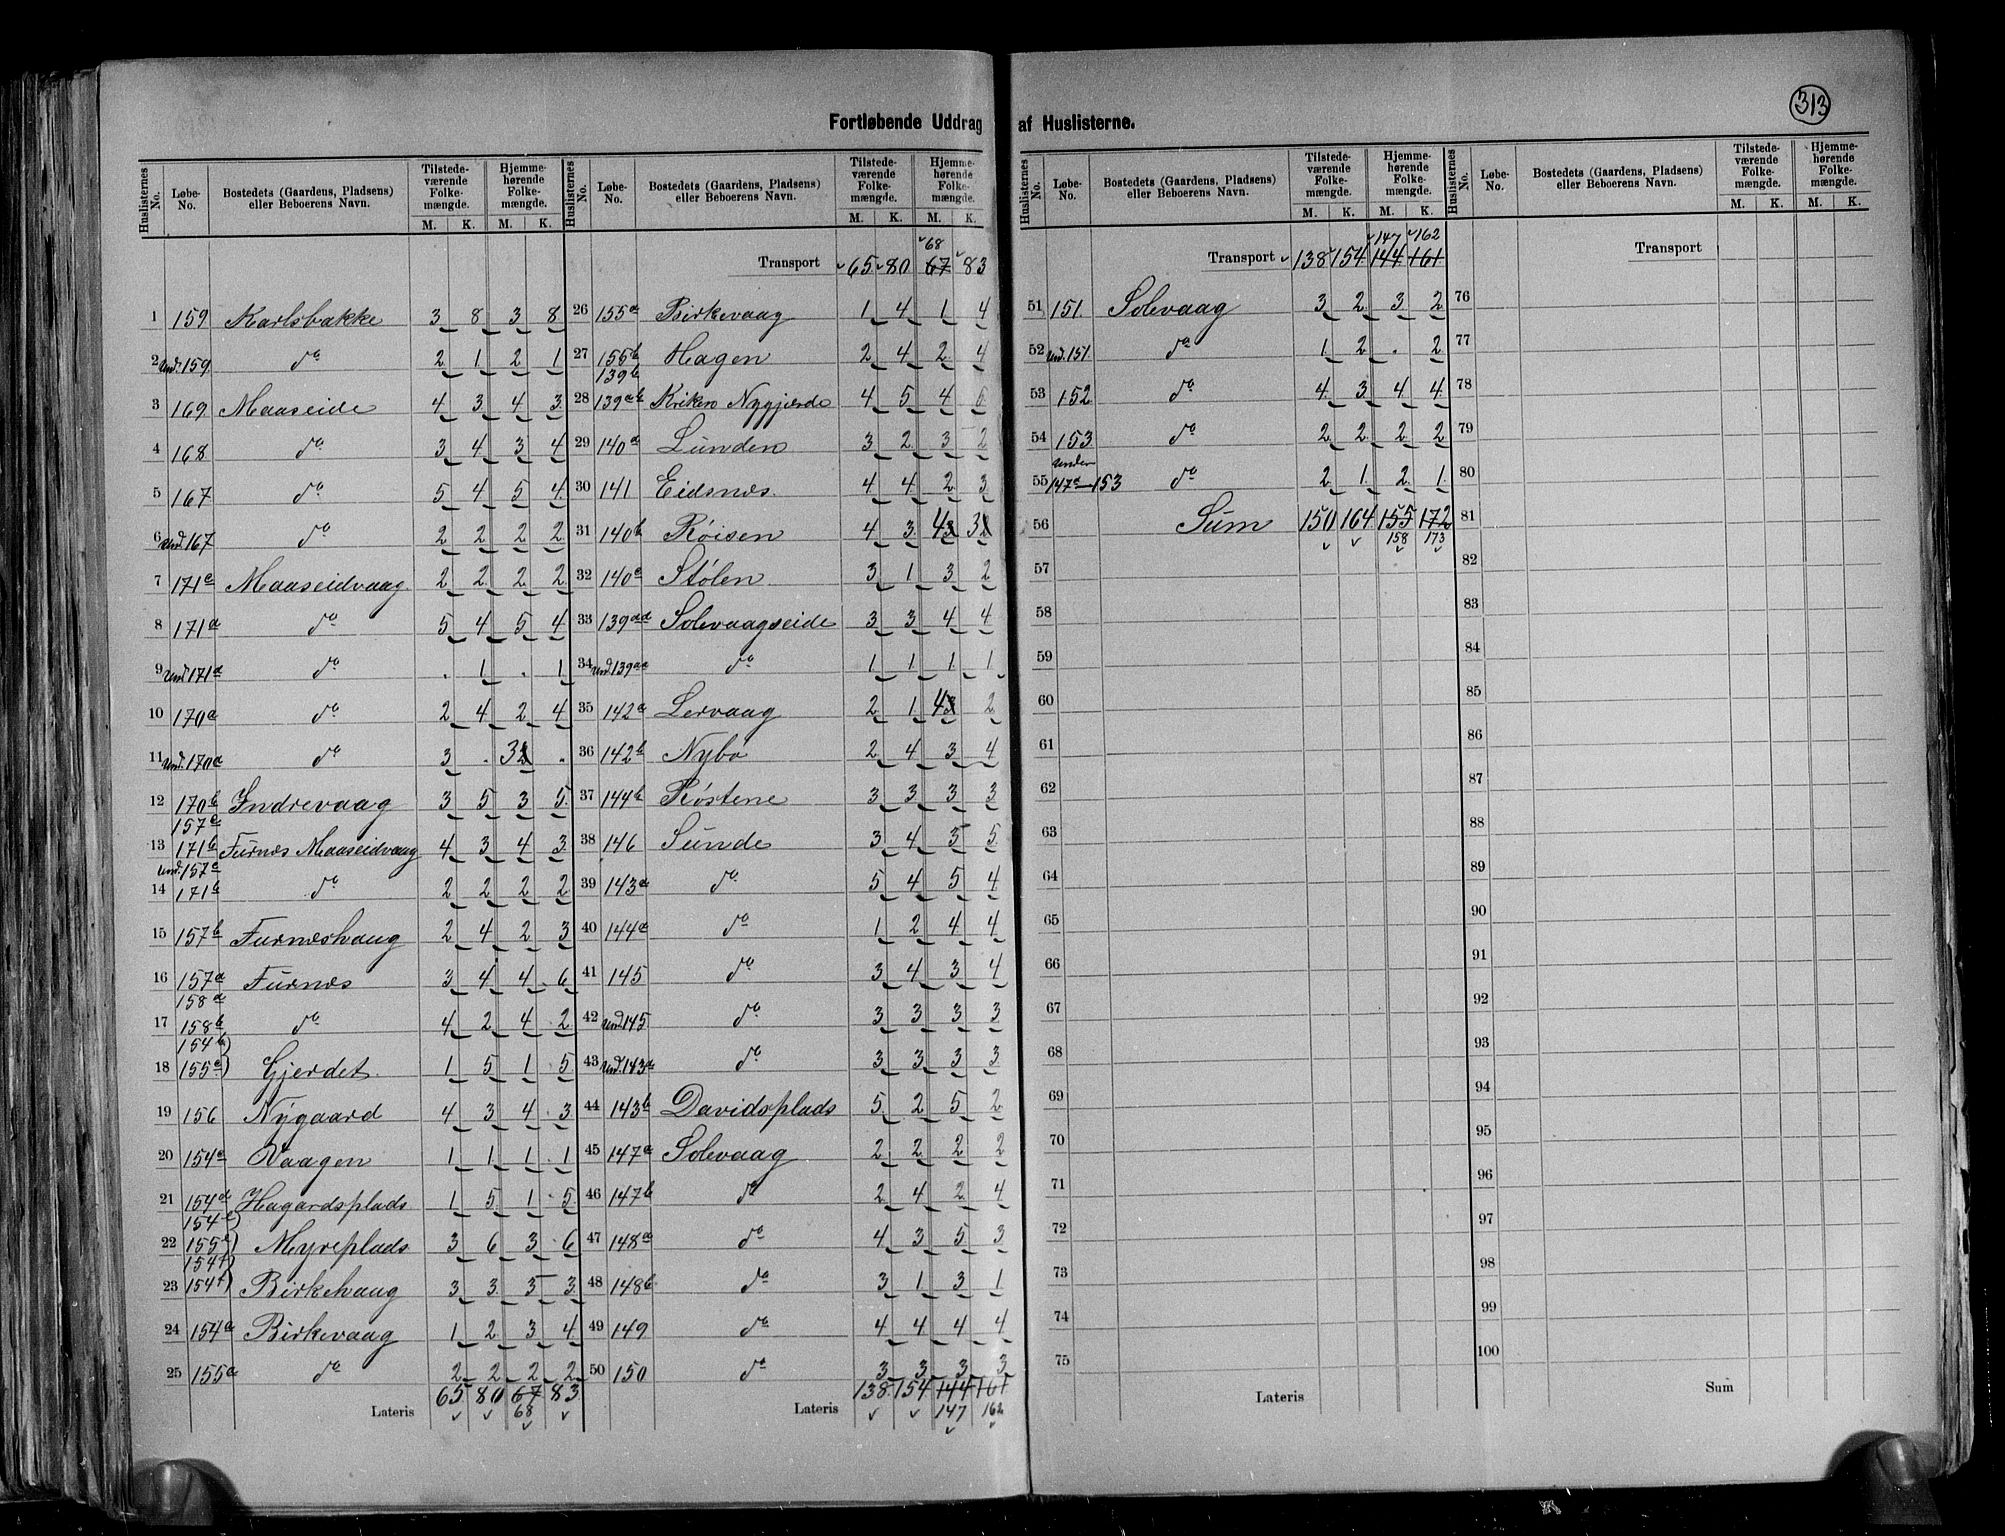 313
Fortløbende Uddrag af Huslisterne.
Huslisternes No. | Løbe-No. | Bostedets (Gaardens, Pladsens) eller Beboerens Navn. | Tilstedeværende Folkemængde. M. K. | Hjemmehørende Folkemængde. M. K.
1 159 Karlsbakke 3 8 3 8
2 Und. 159 do 2 1 2 1
3 169 Maaseide 4 3 4 3
4 168 do 3 4 3 4
5 167 do 5 4 5 4
6 Und. 167 do 2 2 2 2
7 171c Maaseidvaag 2 2 2 2
8 171a do 5 4 5 4
9 Und. 171a do . 1 . 1
10 170a do 2 4 2 4
11 Und. 170a do 3 . 3 .
12 170b Indrevaag 3 5 3 5
13 157c 171b Furnes Maaseidvaag 4 3 4 3
14 Und. 157c 171b do 2 2 2 2
15 157b Furneshaug 2 4 2 3
16 157a 158a Furnes 3 4 4 6
17 158b do 4 2 4 2
18 154b 155c Gjerdet 1 5 1 5
19 156 Nygaard 4 3 4 3
20 154c Vaagen 1 1 1 1
21 154d Hagardsplads 1 5 1 5
22 154e 155e Myreplads 3 6 3 6
23 154f 154f Birkehaug 3 3 3 3
24 154a Birkevaag 1 2 3 4
25 155a do 2 2 2 2
Lateris 65 80 67 83
68
Huslisternes No. | Løbe-No. | Bostedets (Gaardens, Pladsens) eller Beboerens Navn. | Tilstedeværende Folkemængde. M. K. | Hjemmehørende Folkemængde. M. K.
68
Transport 65 80 67 83
26 155a Birkevaag 1 4 1 4
27 155b Hagen 2 4 2 4
28 139b 139ab Kriken Nygjerde 4 5 4 5
29 140a Lunden 3 2 3 2
30 141 Eidsnes 4 4 2 3
31 140b Røisen 4 3 4 3
32 140c Stølen 3 1 3 2
33 139aa Solevaagseide 3 3 4 4
34 Und. 139aa do 1 1 1 1
35 142a Lervaag 2 1 4 2
36 142b Nybø 2 4 3 4
37 144b Røstene 3 3 3 3
38 146 Sunde 3 4 3 5
39 143a do 5 4 5 4
40 144a do 1 2 4 4
41 145 do 3 4 3 4
42 Und. 145 do 3 3 3 3
43 Und. 143a do 3 3 3 3
44 143b Davidsplads 5 2 5 2
45 147a Solevaag 2 2 2 2
46 147b do 2 4 2 4
47 148a do 4 3 5 3
48 148b do 3 1 3 1
49 149 do 4 4 4 4
50 150 do 3 3 3 3
Lateris 138 154 144 161
147 162
Huslisternes No. | Løbe-No. | Bostedets (Gaardens, Pladsens) eller Beboerens Navn. | Tilstedeværende Folkemængde. M. K. | Hjemmehørende Folkemængde. M. K.
147 162
Transport 138 154 144 161
51 151 Solevaag 3 2 3 2
52 Und. 151 do 1 2 . 2
53 152 do 4 3 4 4
54 153 do 2 2 2 2
55 Under 147a 153 do 2 1 2 1
56 Sum 150 164 155 172
158 173
57
58
59
60
61
62
63
64
65
66
67
68
69
70
71
72
73
74
75
Lateris
Huslisternes No. | Løbe-No. | Bostedets (Gaardens, Pladsens) eller Beboerens Navn. | Tilstedeværende Folkemængde. M. K. | Hjemmehørende Folkemængde. M. K.
Transport
76
77
78
79
80
81
82
83
84
85
86
87
88
89
90
91
92
93
94
95
96
97
98
99
100
Sum